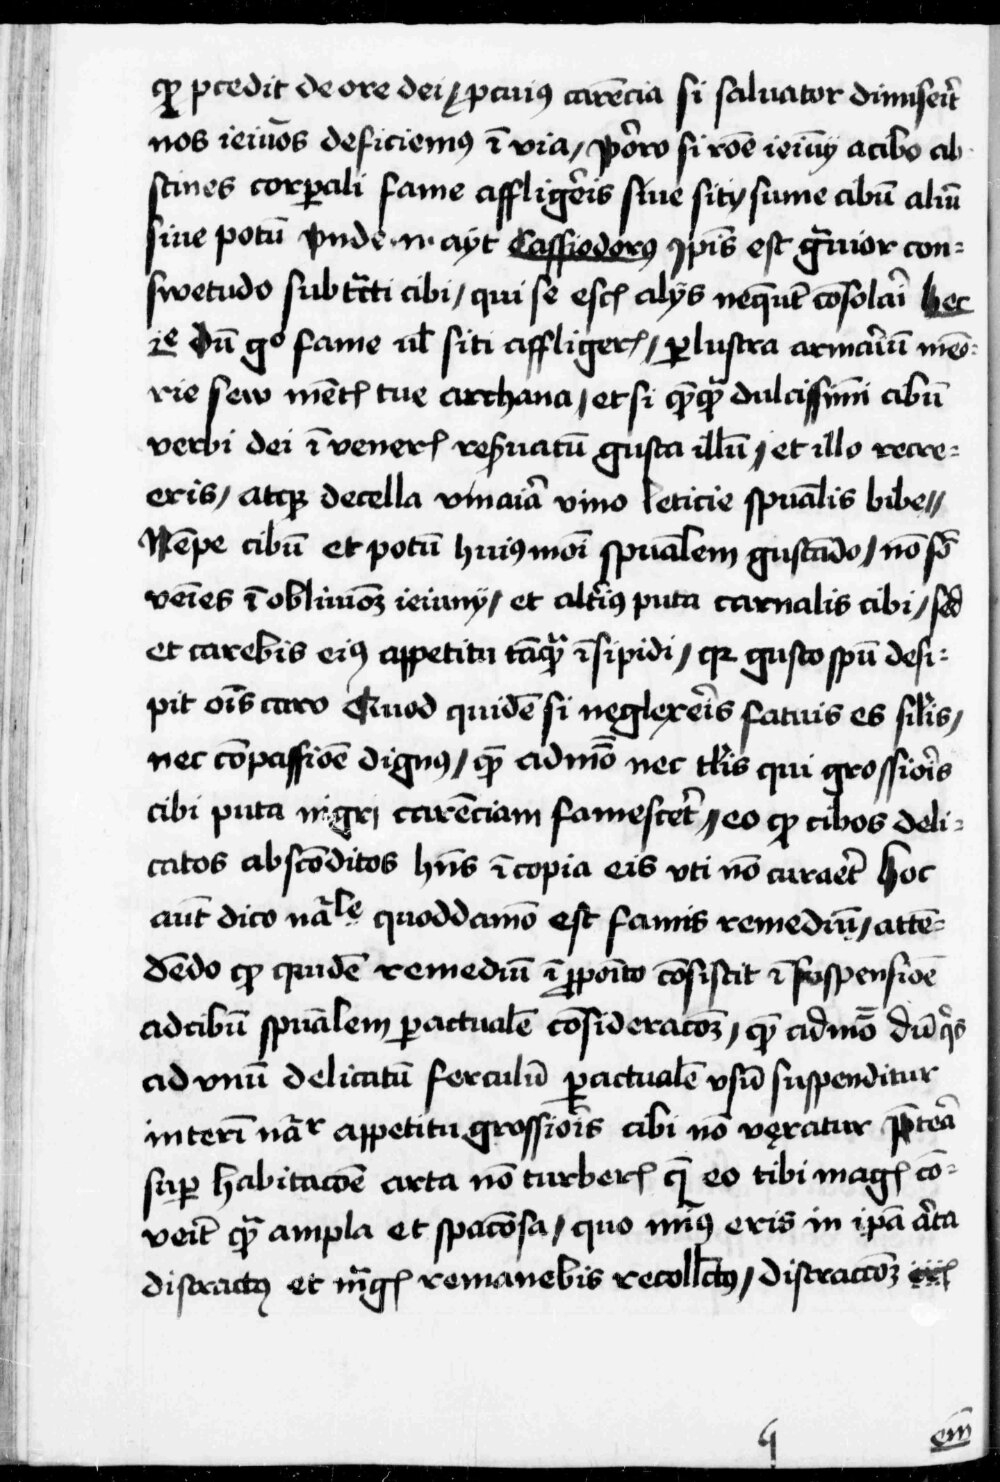 qꝫ ꝓcedit de ore dei / ꝓ cuiꝰ carēcia si saluator dimiseit̄
nos ieiūos deficiemꝰ ī via / Porro si rōe ieiūij a cibo ab
stines corꝑali fame affligeris siue sity sume cibū aliū
siue potū Vnde .n. ayt Cassiodorꝰ Ipīs est grauior con=
swetudo subtracti cibi / qui se escꝭ alijs neq̄unt cōsolari hec
ille Dū gͦ fame ul̄ siti affligerꝭ / ꝑlustra armariū meō=
rie sew mētꝭ tue archana / et si qͣꝫ dulcissimi cibū
verbi dei ī venerꝭ reẜuatū gusta illū / et illo recre=
eris / atqꝫ de cella vinaria vino leticie spūalis bibe //
Nēpe cibū et potū huiꝰmōi spūalem gustādo / nō sō
veīes ī obliuiōꝫ ieiunij / et altiꝰ puta carnalis cibi / sed
et carebis eiꝰ appetitu tāqͣꝫ īsipidi / qꝛ gusto spū desi=
pit oīs caro Quod quidē si neglexeris fatuis es silis /
nec cōpassiōe dignꝰ / qꝫ admō nec talis qui grossioris
cibi puta nigri carēciam famesceret / eo qꝫ cibos deli=
catos abscōditos hn̄s ī copia eis vti nō curaet̄ Hoc
aūt dico nāle quoddamō est famis remediū / attē=
dēdo qꝫ quidē remediū ī ꝓpoīto cōsistit ī suspensiōe
ad cibū spūalem ꝑ actualē cōsideracōꝫ / qꝫ admō dū qͥs
ad vnū delicatū ferculū ꝑ actualē vsū suspenditur
interī nāʳ appetitu grossioris cibi nō vexatur Pret̄ea
suꝑ habitacōe arta nō turberꝭ qꝫ eo tibi magꝭ cō=
veit̄ qͣꝫ ampla et spacōsa / quo minꝰ eris in ipā arta
distractꝰ et magꝭ remanebis recollectꝰ / distraccōꝫ
em̄